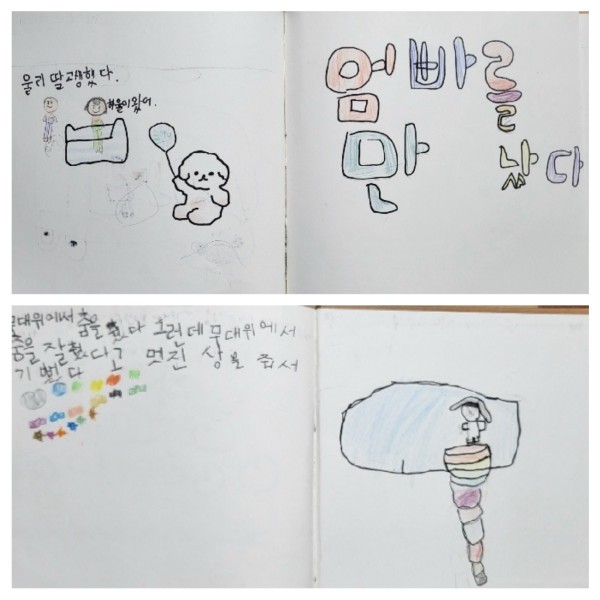 울리 딸 고생했다.
엄빠를
만 났다
무대위에서 춤을 췄다 그런데 무대위에서
춤을 잘췄다고 멋진 상을 줘서
기뻤다